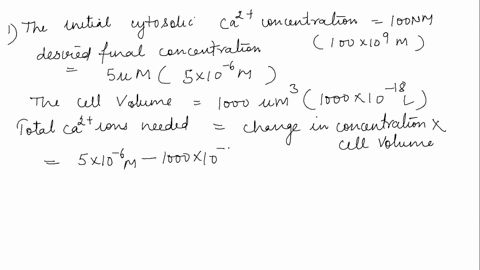 1) The initial cytosolic Ca²⁺ concentration = 100NM
(100×10⁹ M)
desired final concentration
= 5uM (5×10⁻⁶ M)
The cell Volume = 1000 um³ (1000×10⁻¹⁸ L)
Total Ca²⁺ ions needed = change in concentration X
cell volume
= 5×10⁻⁶ M — 1000×10⁻